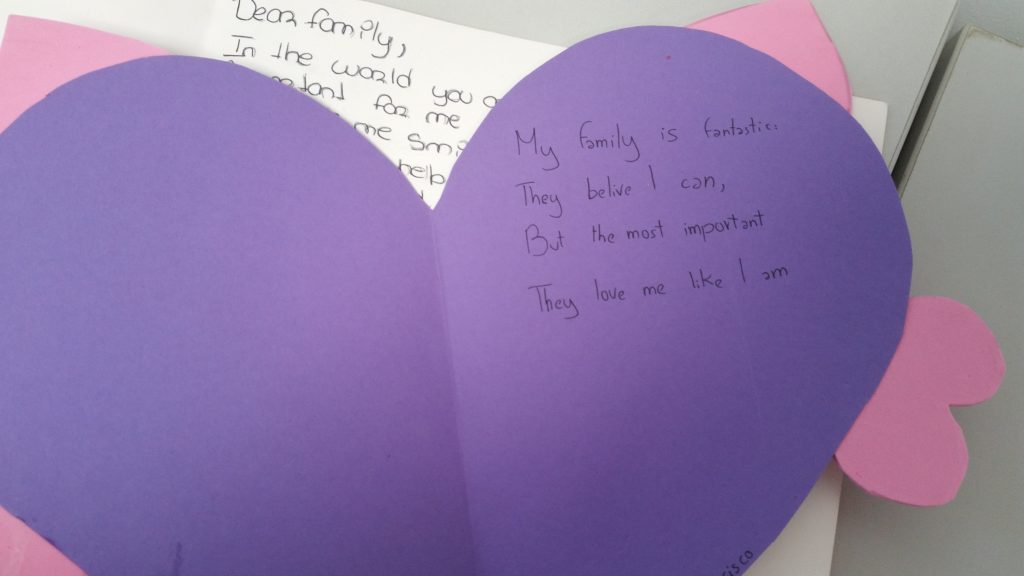 Dear family,
In the world you
for me
me
help
My family is fantastic:
They belive I can,
But the most important
They love me like I am